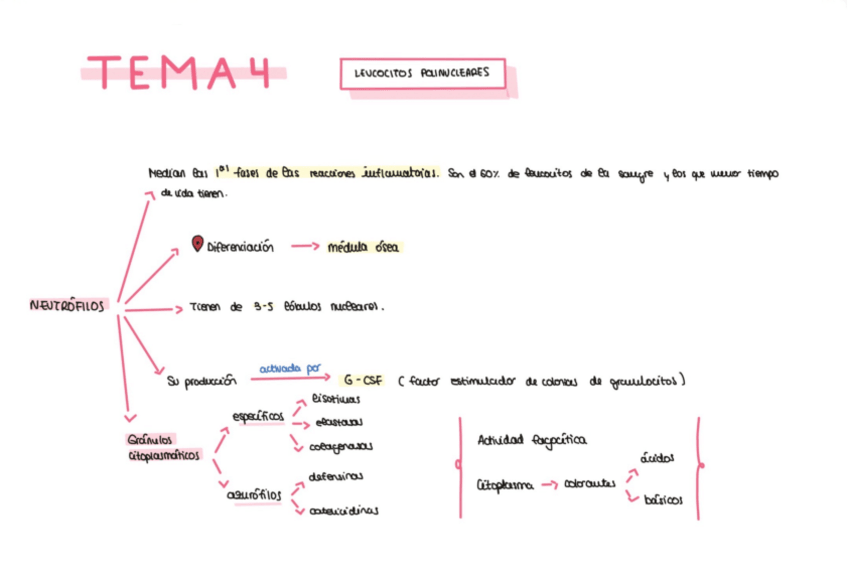 TEMA 4
LEUCOCITOS POLINUCLEARES
Median las 1as fases de las reacciones inflamatorias. Son el 60% de leucocitos de la sangre y los que menor tiempo
de vida tienen.
Diferenciación → médula ósea
NEUTRÓFILOS
Tienen de 3-5 lóbulos nucleares.
Su producción activada por → G-CSF (factor estimulador de colonias de granulocitos)
Gránulos
citoplasmáticos
específicos
lisozimas
elastasas
colagenasas
azurófilos
defensinas
catelicidinas
Actividad fagocítica
Citoplasma → colorantes
ácidos
básicos